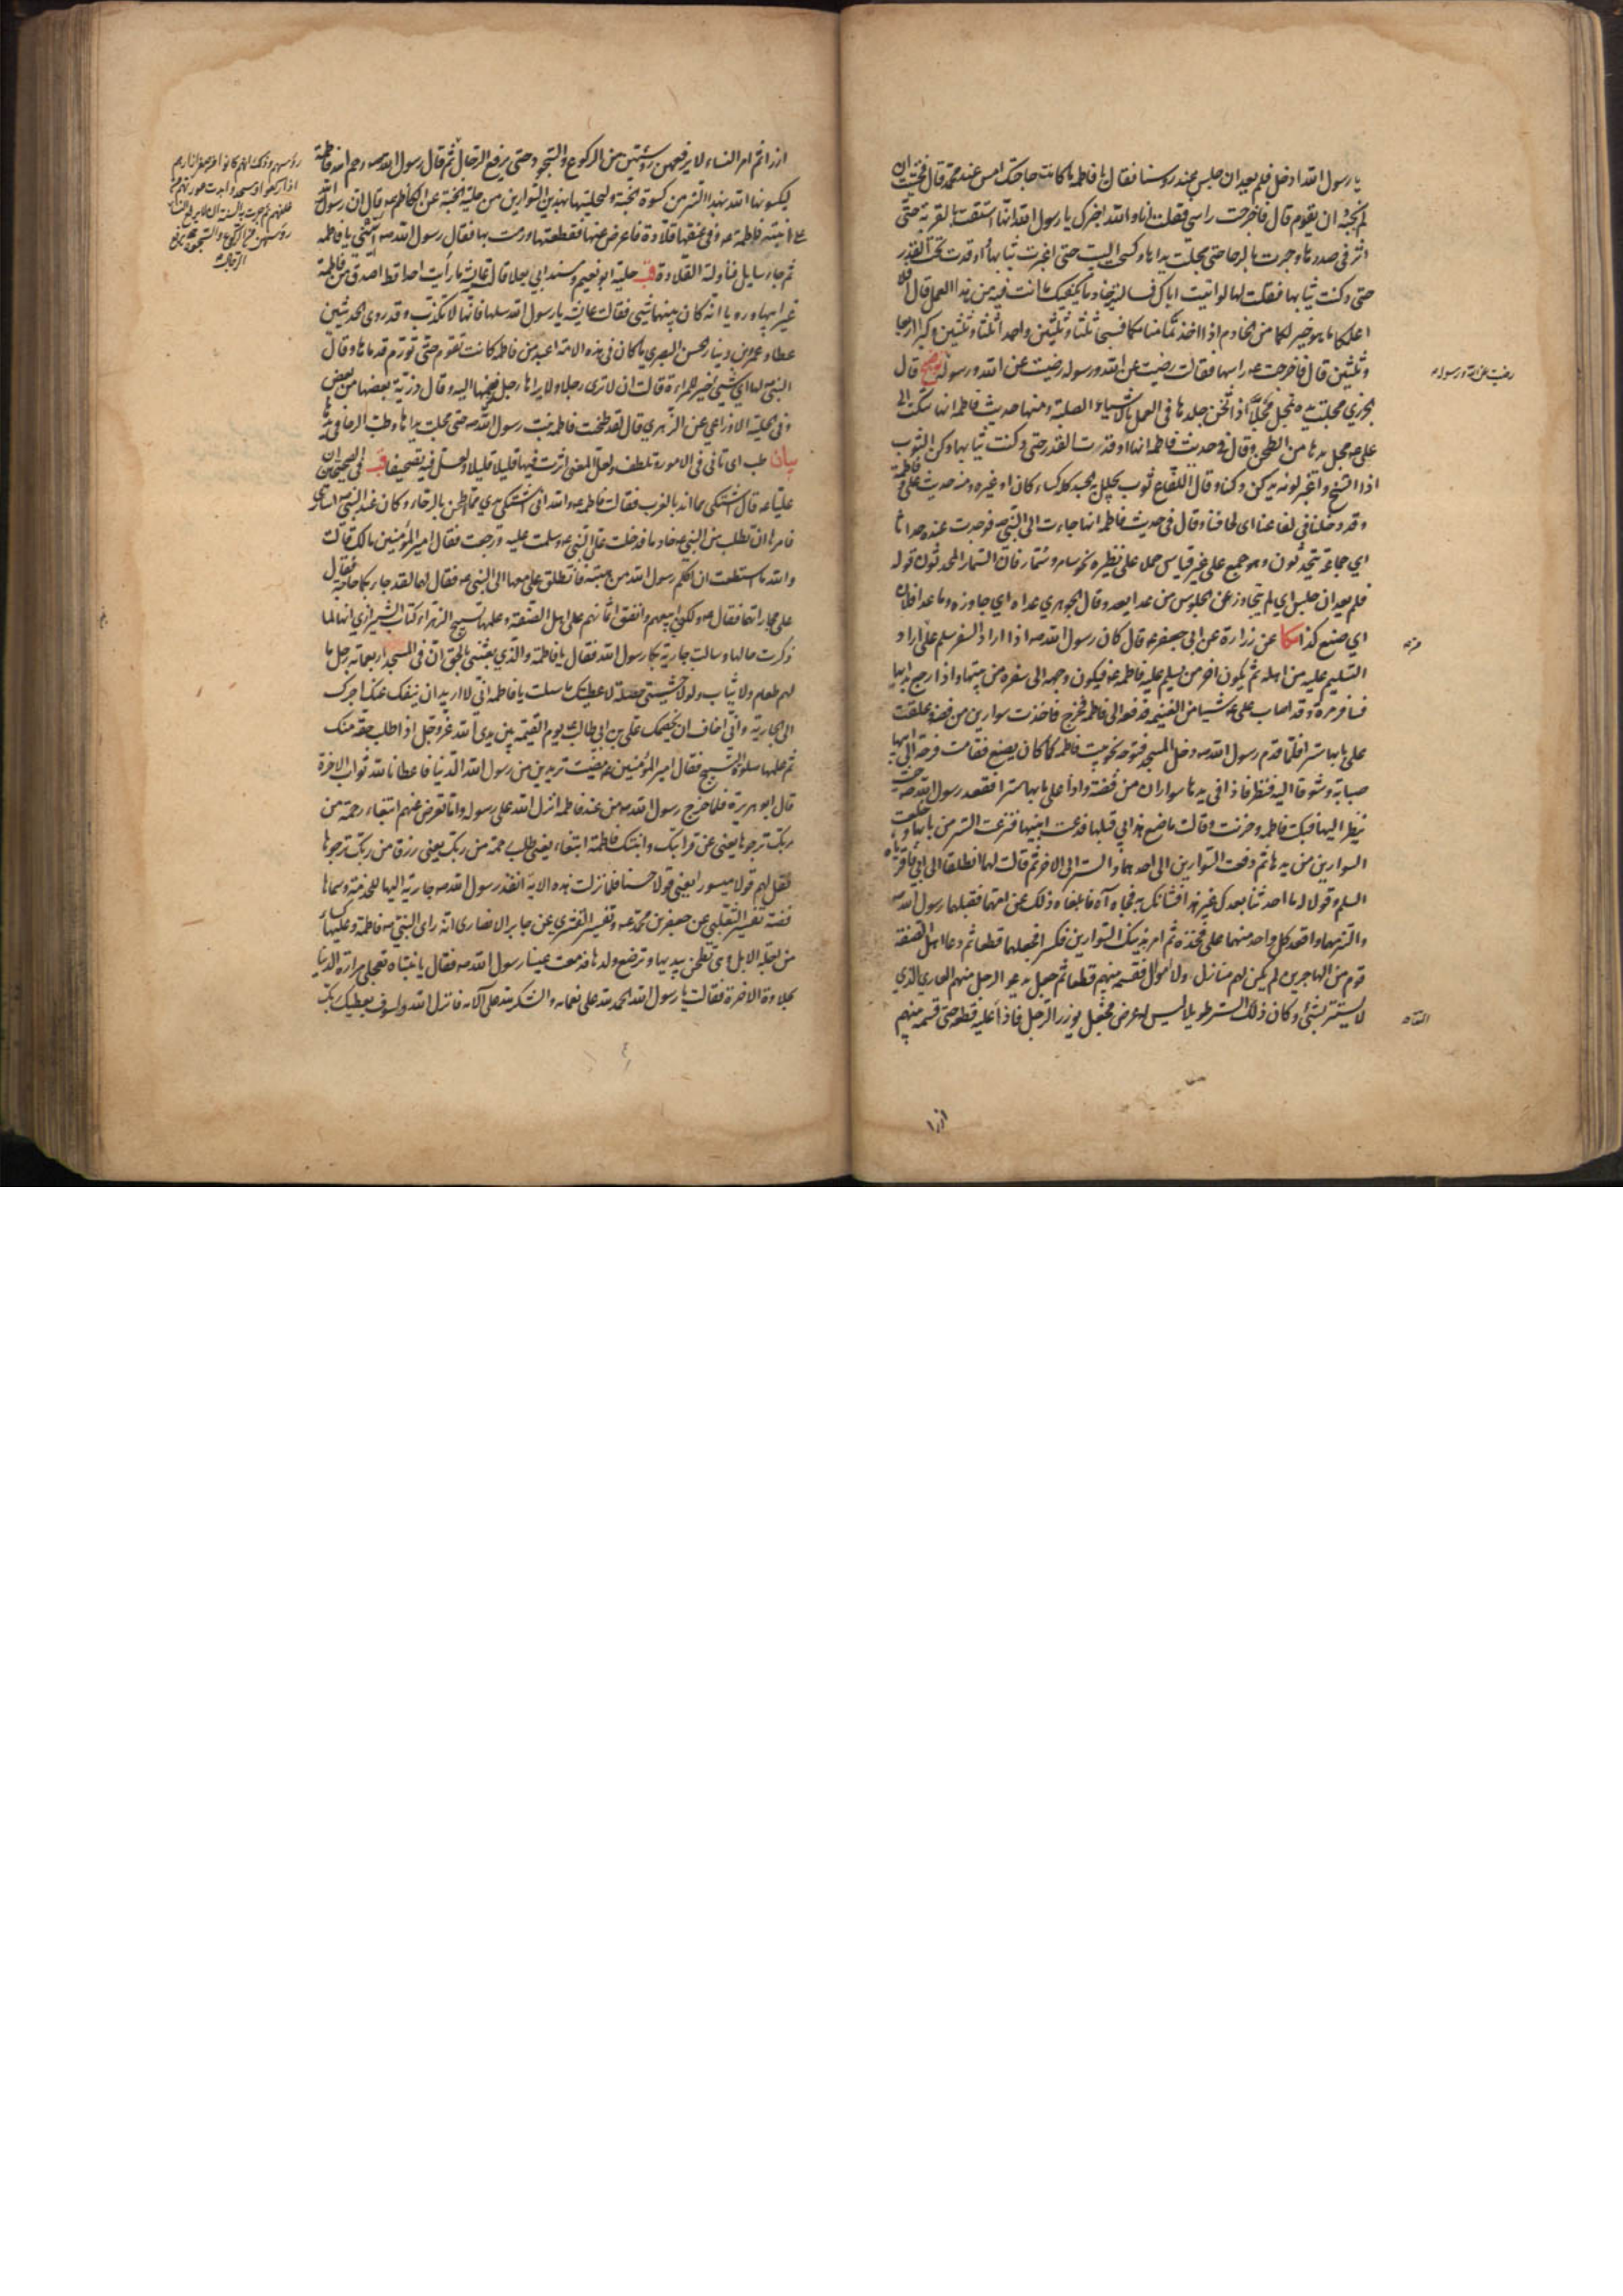 يا رسول الله ادخل فلم يعد ان جلس عند رؤسنا فقال يا فاطمة ما كانت حاجتك امس عند محمد قال فخشيت ان
لم نجبه ان يقوم قال فاخرجت راسي فقلت انا والله اخبرك يا رسول الله انها استقت بالقربة حتى
اثر في صدرها وجرت بالرحا حتى مجلت يداها وكسحت البيت حتى اغبرت ثيابها واوقدت تحت القدر
حتى دكنت ثيابها فقلت لها لو اتيت اباك فسالتيه خادما يكفيك ما انت فيه من هذا العمل قال افلا
اعلمكما ما هو خير لكما من الخادم اذا اخذتما منامكما فسبحا ثلثا وثلثين واحمدا ثلثا وثلثين وكبرا اربعا
وثلثين قال فاخرجت راسها فقالت رضيت عن الله ورسوله رضيت عن الله ورسوله قال
رضيت عن الله ورسوله
الجزري مجلت يده تمجل مجلا اذا ثخن جلدها في العمل بالاشياء الصلبة ومنها حديث فاطمة انها شكت الى
علي مجل يدها من الطحن وقال في حديث فاطمة انها اوقدت القدر حتى دكنت ثيابها دكن الثوب
اذا اتسخ واغبر لونه يدكن دكنا وقال اللفاع ثوب يجلل به الجسد كله كساء كان او غيره ومنه حديث علي وفاطمة
وقد دخلنا في لفاعنا اي لحافنا وقال في حديث فاطمة انها جاءت الى النبي فوجدت عنده حداثا
اي جماعة يتحدثون وهو جمع على غير قياس حملا على نظيره نحو سامر وسمار فان السمار المحدثون قوله
فلم يعد ان جلس اي لم يتجاوز عن الجلوس من عدا يعدو قال الجوهري عداه اي جاوزه وما عدا فلان
اي صنع كذا مكا عن زرارة عن ابي جعفر قال كان رسول الله اذا اراد السفر سلم على من اراد
التسليم عليه من اهله ثم يكون اخر من يسلم عليه فاطمة فيكون وجهه الى سفره من بيتها واذا رجع بدا بها
فسافر مرة وقد اصاب علي شيئا من الغنيمة فدفعه الى فاطمة فخرج فاخذت سوارين من فضة وعلقت
على بابها سترا فلما قدم رسول الله دخل المسجد فتوجه نحو بيت فاطمة كما كان يصنع فقامت فرحة الى ابيها
صبابة وشوقا اليه فنظر فاذا في يدها سواران من فضة واذا على بابها سترا فقعد رسول الله حيث
ينظر اليها فبكت فاطمة وحزنت وقالت ما صنع هذا بي قبلها فدعت ابنيها فنزعت الستر من بابها وخلعت
السوارين من يديها ثم دفعت السوارين الى احدهما والستر الى الاخر ثم قالت لهما انطلقا الى ابي فاقرآه
السلام وقولا له ما احدثنا بعدك غير هذا فشانك به فجاءآه فابلغاه ذلك عن امهما فقبلهما رسول الله
والتزمهما واقعد كل واحد منهما على فخذه ثم امر بذينك السوارين فكسرا فجعلهما قطعا ثم دعا اهل الصفة
قوم من المهاجرين لم يكن لهم منازل ولا اموال فقسمه بينهم قطعا ثم جعل يدعو الرجل منهم العاري الذي
لا يستتر بشيء وكان ذلك الستر طويلا ليس له عرض فجعل يوزر الرجل فاذا التقيا عليه قطعه حتى قسمه بينهم
ازرا
ازرا ثم امر النساء لا يرفعن رؤسهن من الركوع والسجود حتى يرفع الرجال ثم قال رسول الله رحم الله فاطمة
ليكسونها الله بهذا الستر من كسوة الجنة وليحلينها بهذين السوارين من حلية الجنة عن الكاظم قال ان رسول الله
دخل على ابنته فاطمة وفي عنقها قلادة فاعرض عنها فقطعتها ورمت بها فقال رسول الله انت مني يا فاطمة
ثم جاء سايل فناولته القلادة حلية ابو نعيم ومسند ابي يعلا قالت عايشة ما رايت احدا قط اصدق من فاطمة
غير ابيها وروياه انه كان بينهما شيء فقالت عايشة يا رسول الله سلها فانها لا تكذب وقد روى الحديثين
عطا وعمرو بن دينار الحسن البصري ما كان في هذه الامة اعبد من فاطمة كانت تقوم حتى تورم قدماها وقال
النبي لها اي شيء خير للمراة قالت ان لا ترى رجلا ولا يراها رجل فضمها اليه وقال ذرية بعضها من بعض
وفي الحلية الاوزاعي عن الزهري قال لقد طحنت فاطمة بنت رسول الله حتى مجلت يداها وطب الرحا في يدها
بيان طب اي تاني في الامور وتلطف ولعل المعنى اثرت فيها قليلا قليلا ولعل فيه تصحيفا في الصحيحين ان
عليا قال اشتكي مما اندأ بالقرب فقالت فاطمة والله اني اشتكي يدي مما اطحن بالرحا وكان عند النبي اسارى
فامرها ان تطلب من النبي خادما فدخلت على النبي وسلمت عليه ورجعت فقال امير المؤمنين ما لك قالت
والله ما استطعت ان اكلم رسول الله من هيبته فانطلق علي معها الى النبي فقال لهما لقد جاءت بكما حاجة فقال
علي مجاراتهما فقال لا ولكني ابيعهم وانفق اثمانهم على اهل الصفة وعلمها تسبيح الزهراء كتاب الشيرازي انها لما
ذكرت حالها وسالت جارية بكا رسول الله فقال يا فاطمة والذي بعثني بالحق ان في المسجد اربعمائة رجل ما
لهم طعام ولا ثياب ولولا خشيتي خصلة لاعطيتك ما سالت يا فاطمة اني لا اريد ان ينفك عنك اجرك
الى الجارية واني اخاف ان يخصمك علي بن ابي طالب يوم القيمة بين يدي الله عز وجل اذا طلب حقه منك
ثم علمها صلوة التسبيح فقال امير المؤمنين مضيت تريدين من رسول الله الدنيا فاعطانا الله ثواب الاخرة
قال ابو هريرة فلما خرج رسول الله من عند فاطمة انزل الله على رسوله واما تعرضن عنهم ابتغاء رحمة من
ربك ترجوها يعني عن قرابتك وابنتك فاطمة ابتغاء يعني طلب رحمة من ربك يعني رزقا من ربك ترجوها
فقل لهم قولا ميسورا يعني قولا حسنا فلما نزلت هذه الاية انفذ رسول الله جارية اليها للخدمة وسماها
فضة تفسير الثعلبي عن جعفر بن محمد وتفسير القشيري عن جابر الانصاري انه راى النبي فاطمة وعليها كساء
من اجلة الابل وهي تطحن بيديها وترضع ولدها فدمعت عينا رسول الله فقال يا بنتاه تعجلي مرارة الدنيا
بحلاوة الاخرة فقالت يا رسول الله الحمد لله على نعمائه والشكر لله على آلائه فانزل الله ولسوف يعطيك ربك